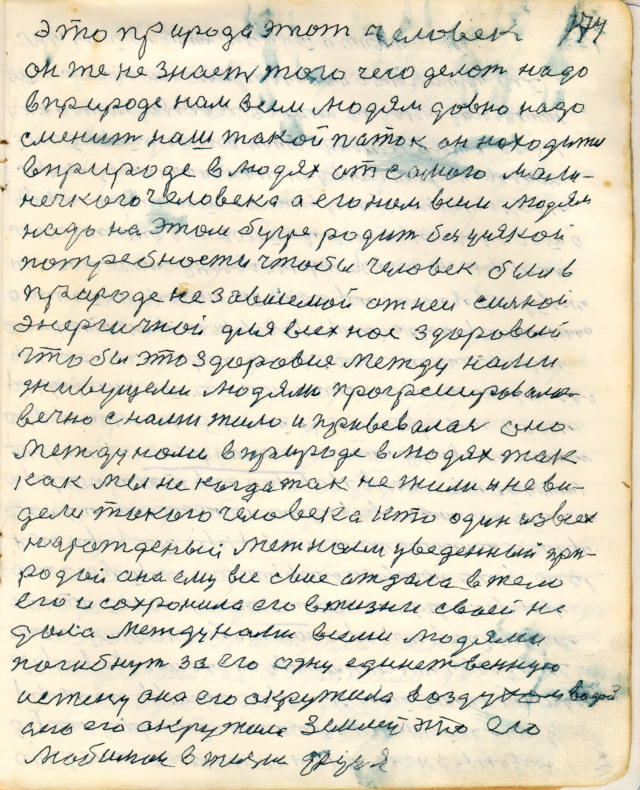 это природа этот человек 174
он те не знает того чего делот надо
в природе нам всем людям довно надо
сменит наш такой паток он находити
в природе в людях от самого мали-
нечкого человека а его нам всем людям
надо на этом бугре родит без усякой
потребности чтобы человек был в
природе не зависемой от неи силной
энергичной для всех нас здоровый
чтобы это здоровие между нами
живущеми людями прогресировала
вечно с нами жило и привевалася оно
между нами в природе в людях так
как мы не когда так не жили и не ви-
дели такого человека кто один из всех
нарожденый меж нами уведенный при-
родой она ему все свие отдала в тело
его и сохронила его в жизни своей не
дала между нами всеми людями
погибнут за его одну единственную
истену она его окружила воздухом водой
она его окружила землей это его
любимои в жизни друзя